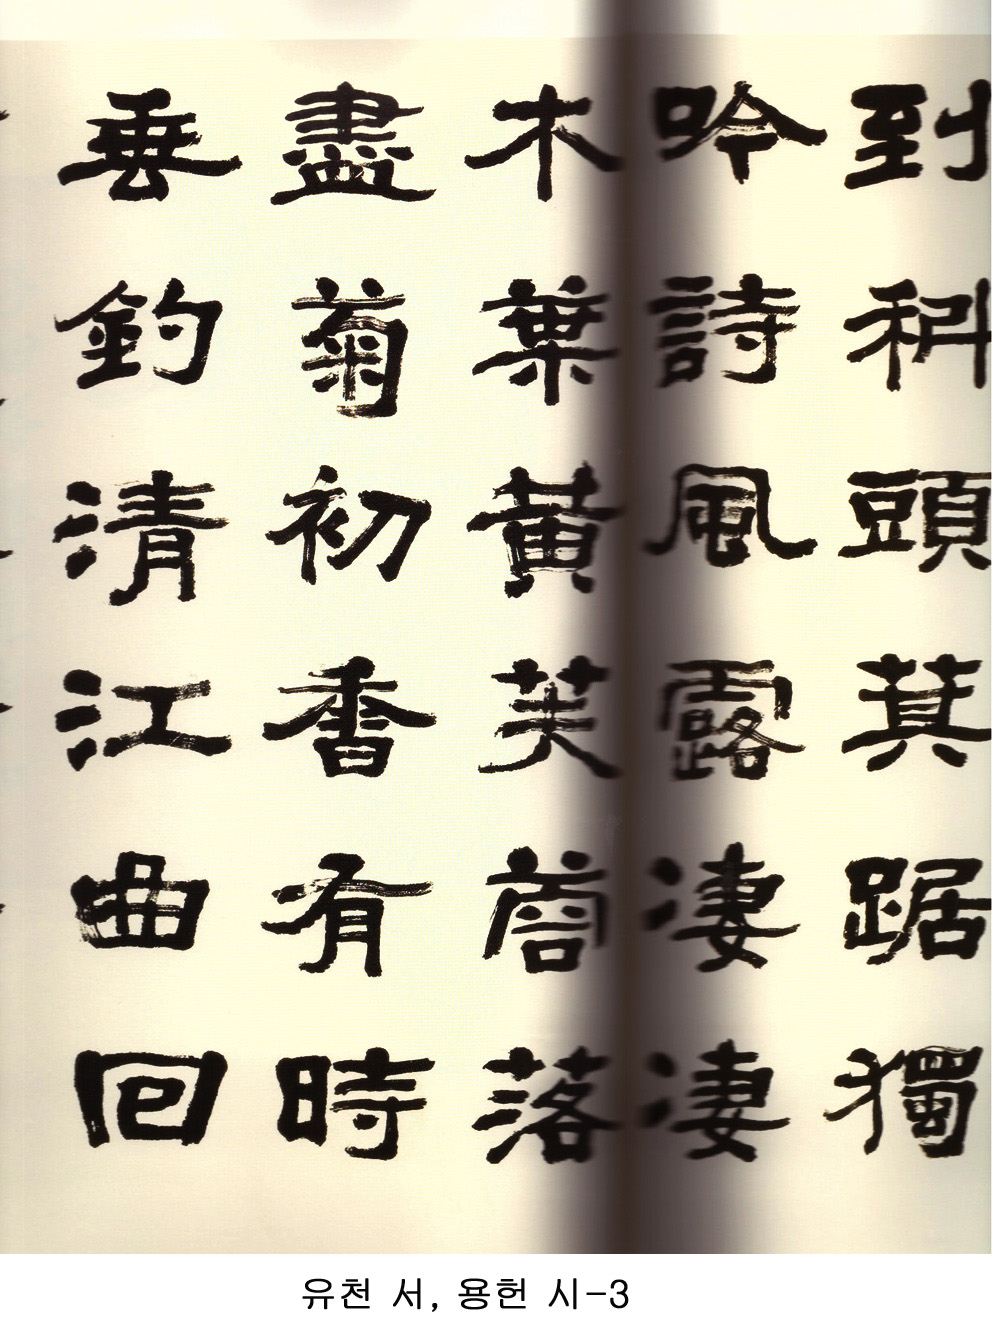 到科頭箕踞獨
吟詩風露凄凄
木葉黃芙蓉落
盡菊初香有時
垂釣清江曲回
유천 서, 용헌 시-3